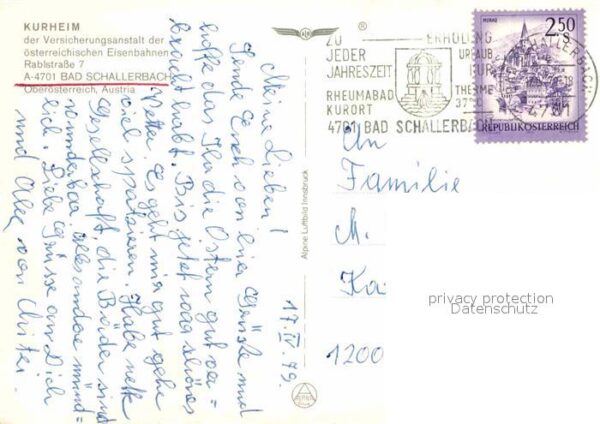 KURHEIM
der Versicherungsanstalt der
österreichischen Eisenbahnen
Rablstraße 7
A-4701 BAD SCHALLERBACH
Oberösterreich, Austria
®
ZU
JEDER
JAHRESZEIT
RHEUMABAD
KURORT
4701 BAD SCHALLERBACH
ERHOLUNG
URLAUB
KUR
THERME
37°
BAD SCHALLERBACH
4701
MURAU
2.50
S
REPUBLIK ÖSTERREICH
17.IV.79.
Meine Lieben!
Sende Euch von hier Grüsse und
hoffe das Ihr die Ostern gut ver=
bracht habt. Bis jetzt schönes
Wetter. Es geht mir gut gehe
viel spazieren. Habe nette
Gesellschaft, die Bäder sind
wunderbar, alles andere
Liebe Grüsse an Dich
und von Christei
Alpine Luftbild Innsbruck
An
Familie
M.
Ka
1200
privacy protection
Datenschutz